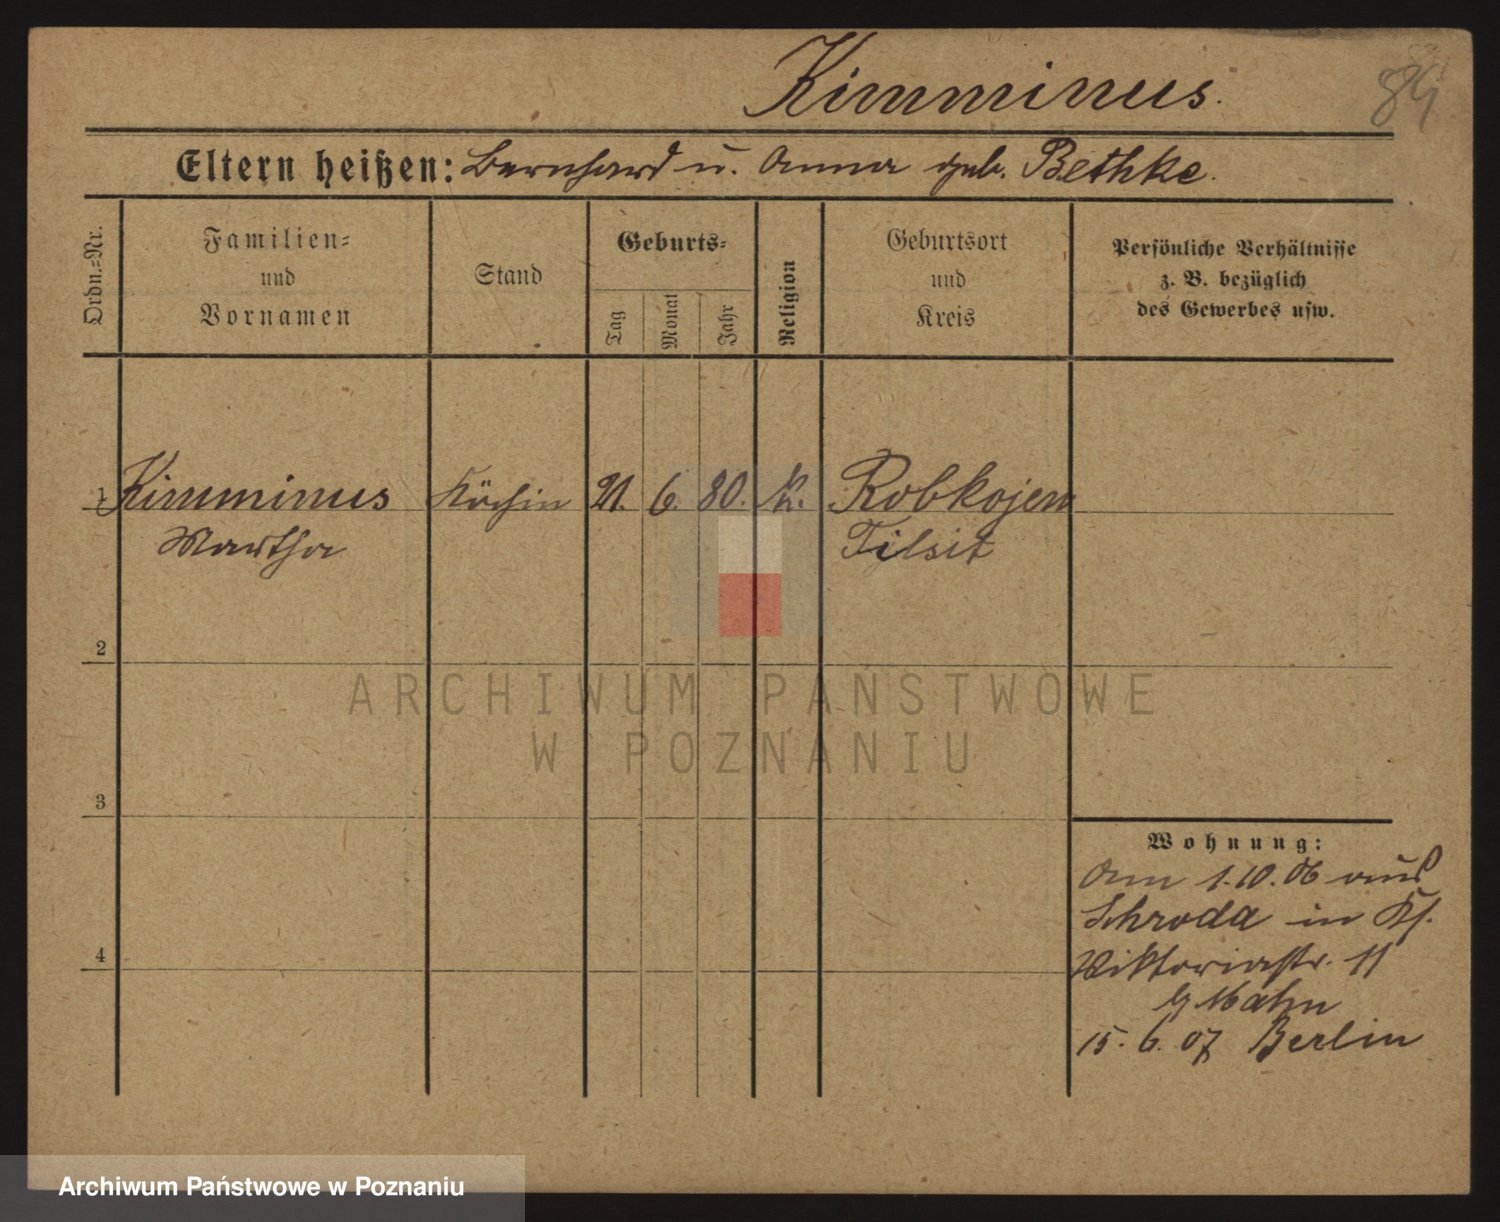 Kimminus.
Eltern heißen: Bernhard u. Anna geb. Bethke.
Ordn.=Nr.
Familien=
und
Vornamen
Stand
Geburts=
Tag
Monat
Jahr
Religion
Geburtsort
und
Kreis
Persönliche Verhältnisse
z. B. bezüglich
des Gewerbes usw.
1 Kimminus Köchin 21. 6. 80. k. Robkojen
Martha Tilsit
2
3
4
Wohnung:
Am 1.10.06 aus
Schroda in
Viktoriastr. 11
b/ Mahn
15. 6. 07 Berlin
ARCHIWUM PAŃSTWOWE
W POZNANIU
Archiwum Państwowe w Poznaniu